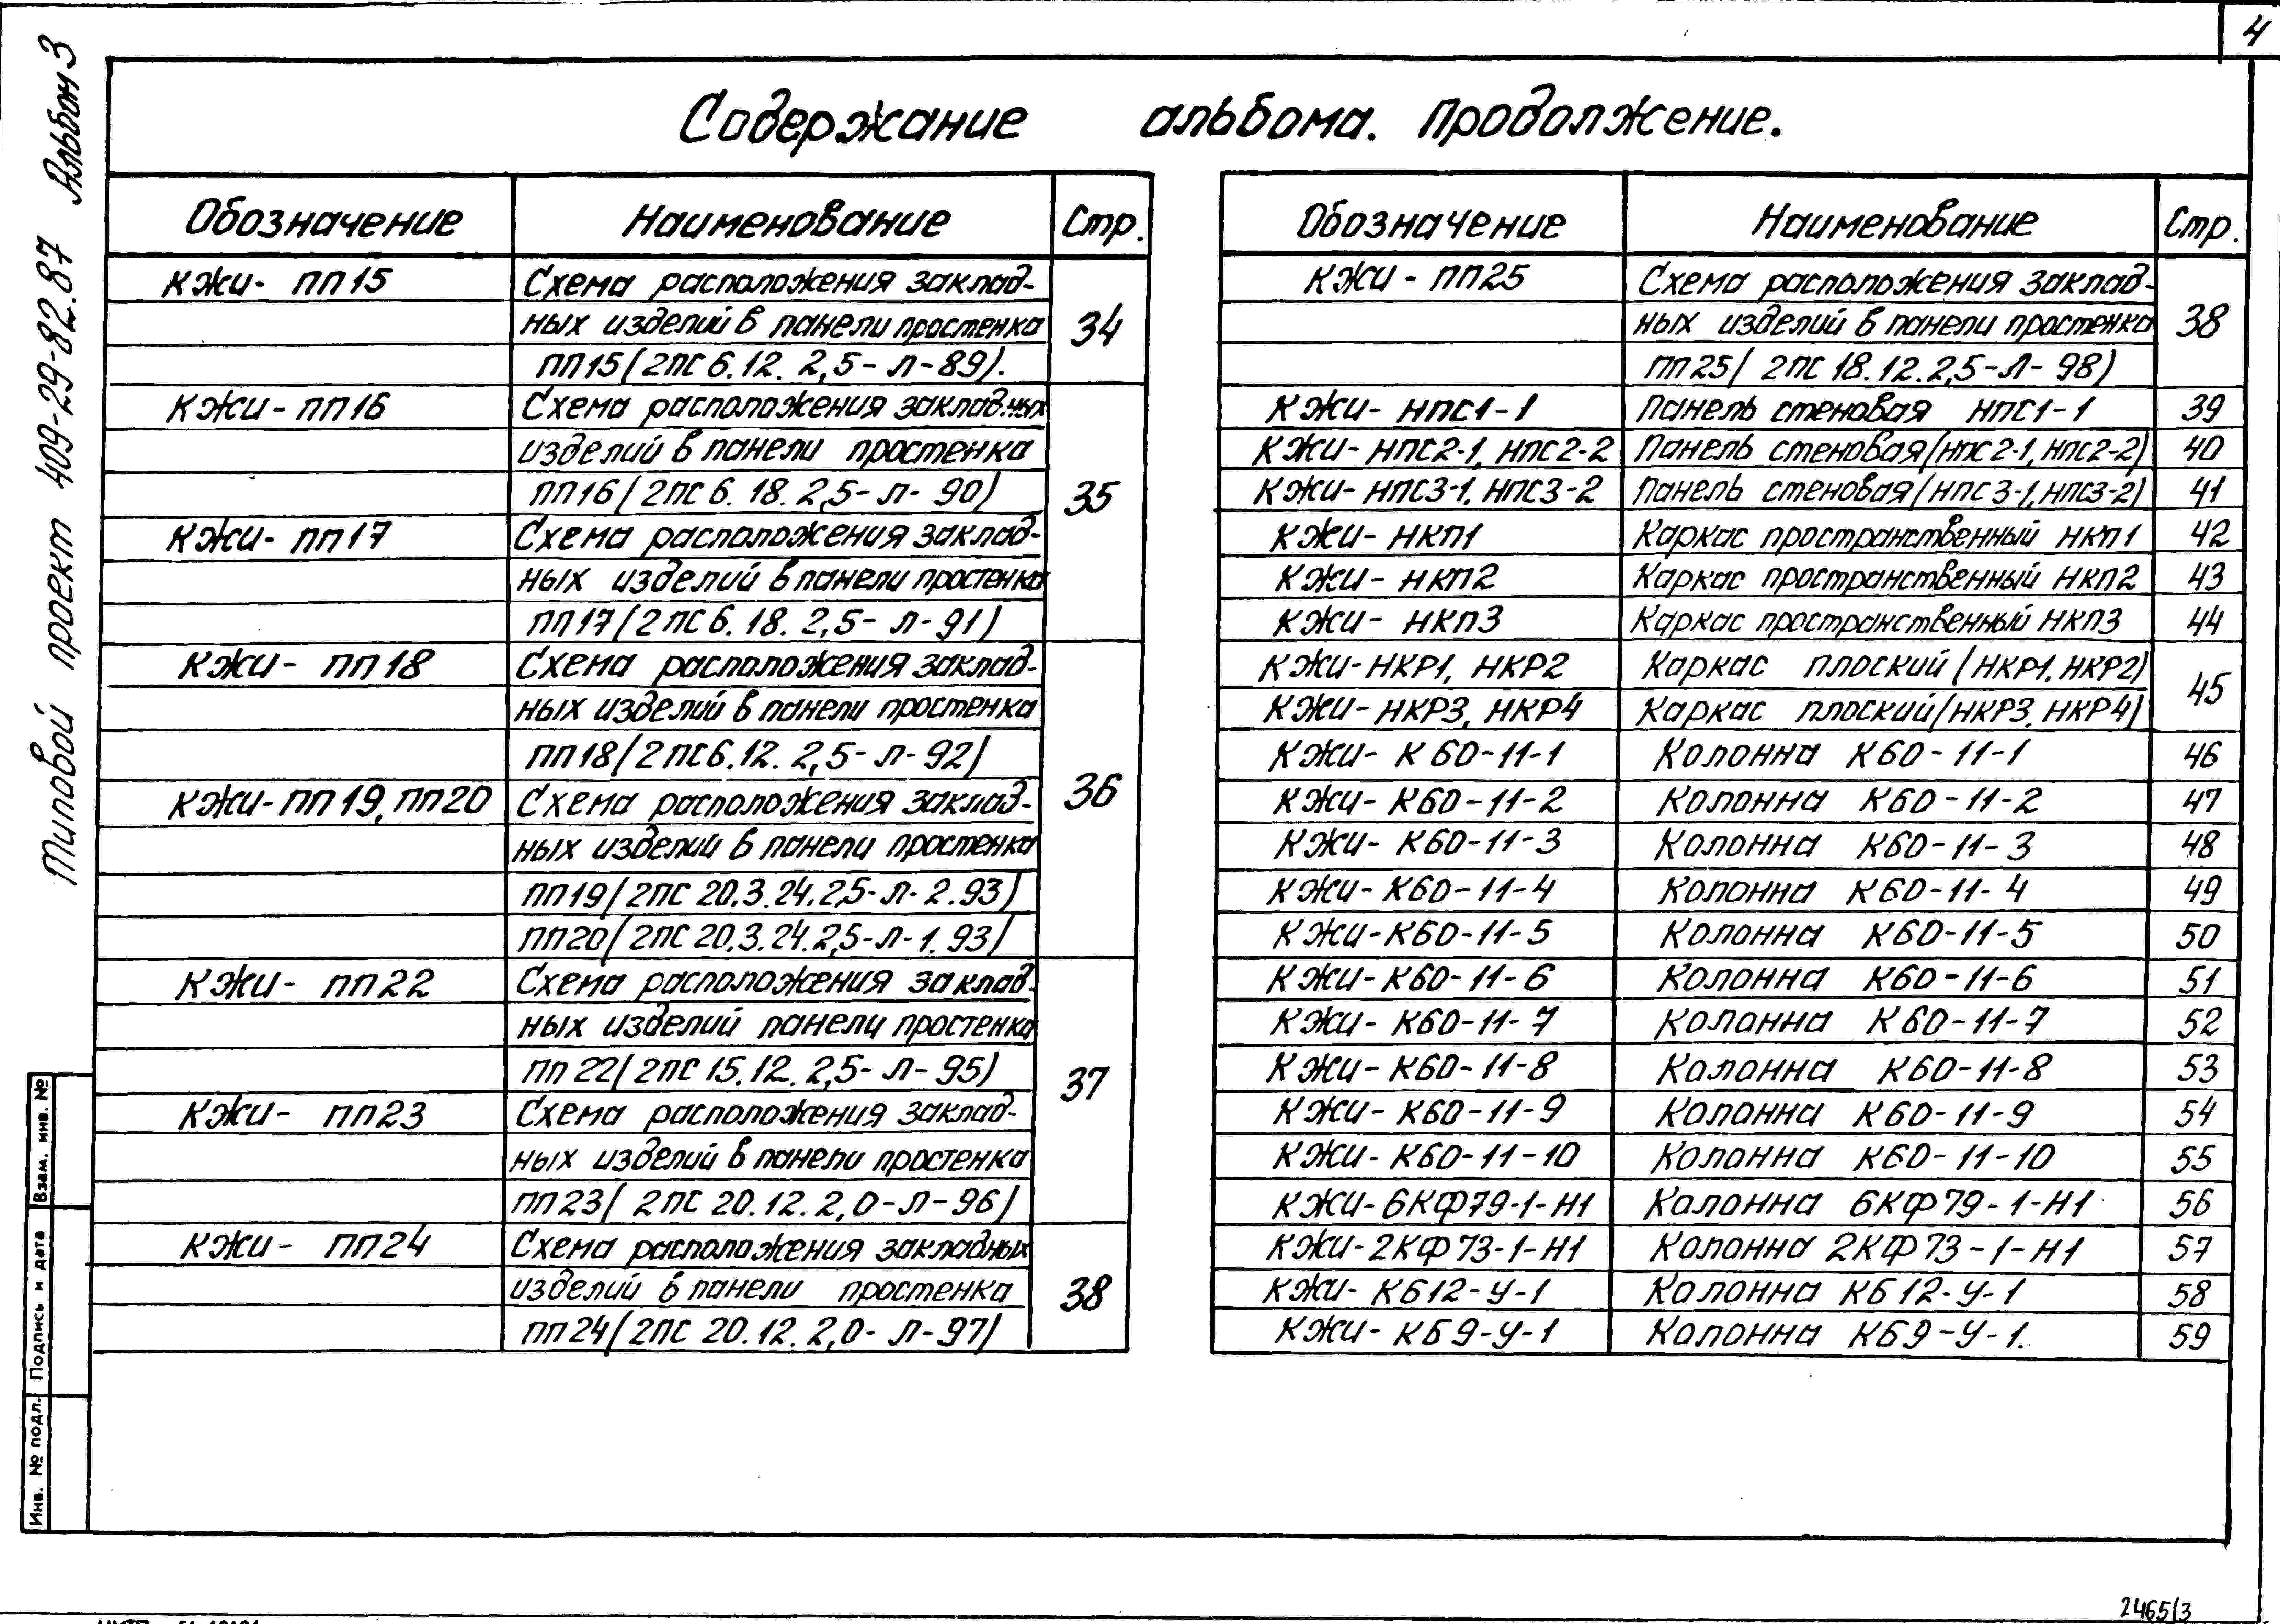 4
Типовой проект 409-29-82.87 Альбом 3
Содержание альбома. Продолжение.
Обозначение Наименование Стр.
КЖИ- ПП15 Схема расположения заклад-
ных изделий в панели простенка 34
ПП15(2ПС 6.12. 2,5- Л-89).
КЖИ-ПП16 Схема расположения закладных
изделий в панели простенка
ПП16(2ПС 6. 18. 2,5- Л- 90) 35
КЖИ- ПП17 Схема расположения заклад-
ных изделий в панели простенка
ПП17(2ПС 6. 18. 2,5- Л-91)
КЖИ- ПП18 Схема расположения заклад-
ных изделий в панели простенка
ПП18(2ПС6.12. 2,5- Л-92)
КЖИ-ПП19, ПП20 Схема расположения заклад- 36
ных изделий в панели простенка
ПП19(2ПС 20.3.24.2,5-Л-2.93)
ПП20(2ПС 20.3.24.2,5-Л-1.93)
КЖИ- ПП22 Схема расположения заклад-
ных изделий панели простенка
ПП22(2ПС 15.12. 2,5- Л-95) 37
КЖИ- ПП23 Схема расположения заклад-
ных изделий в панели простенка
ПП23( 2ПС 20.12. 2,0-Л-96)
КЖИ- ПП24 Схема расположения закладных
изделий в панели простенка 38
ПП24(2ПС 20.12. 2,0- Л-97)
Обозначение Наименование Стр.
КЖИ - ПП25 Схема расположения заклад-
ных изделий в панели простенка 38
ПП25( 2ПС 18.12.2,5-Л- 98)
КЖИ- НПС1-1 Панель стеновая НПС1-1 39
КЖИ-НПС2-1, НПС2-2 Панель стеновая(НПС2-1, НПС2-2) 40
КЖИ-НПС3-1, НПС3-2 Панель стеновая(НПС3-1, НПС3-2) 41
КЖИ-НКП1 Каркас пространственный НКП1 42
КЖИ- НКП2 Каркас пространственный НКП2 43
КЖИ- НКП3 Каркас пространственный НКП3 44
КЖИ-НКР1, НКР2 Каркас плоский (НКР1, НКР2)
КЖИ-НКР3, НКР4 Каркас плоский(НКР3, НКР4) 45
КЖИ- К60-11-1 Колонна К60-11-1 46
КЖИ- К60-11-2 Колонна К60-11-2 47
КЖИ- К60-11-3 Колонна К60-11-3 48
КЖИ-К60-11-4 Колонна К60-11-4 49
КЖИ-К60-11-5 Колонна К60-11-5 50
КЖИ-К60-11-6 Колонна К60-11-6 51
КЖИ-К60-11-7 Колонна К60-11-7 52
КЖИ-К60-11-8 Колонна К60-11-8 53
КЖИ-К60-11-9 Колонна К60-11-9 54
КЖИ-К60-11-10 Колонна К60-11-10 55
КЖИ-6КФ79-1-Н1 Колонна 6КФ79-1-Н1 56
КЖИ-2КФ73-1-Н1 Колонна 2КФ73-1-Н1 57
КЖИ- КБ12-У-1 Колонна КБ12-У-1 58
КЖИ- КБ9-У-1 Колонна КБ9-У-1. 59
Инв. № подл. Подпись и дата Взам. инв. №
2465/3